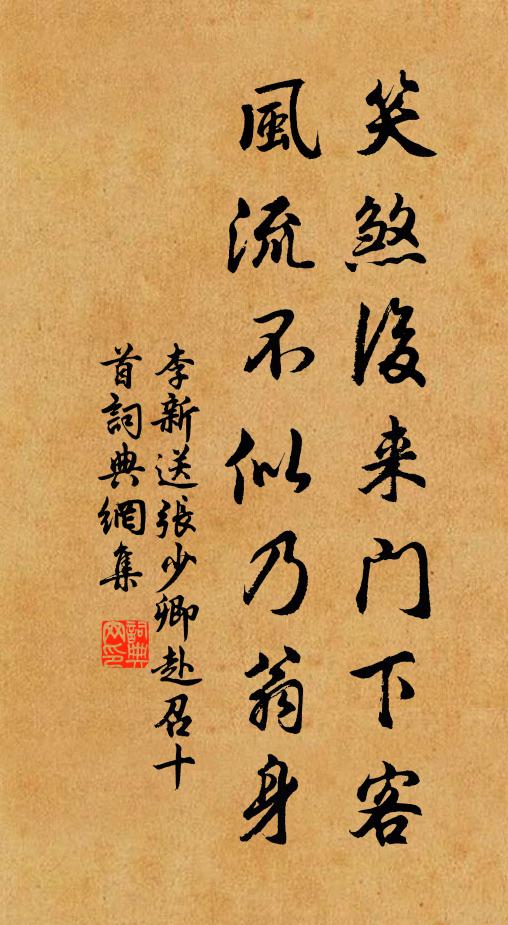 笑煞後来門下客
風流不似乃翁身
李新送張少卿赴召十
首詞典網集
詞典
网印